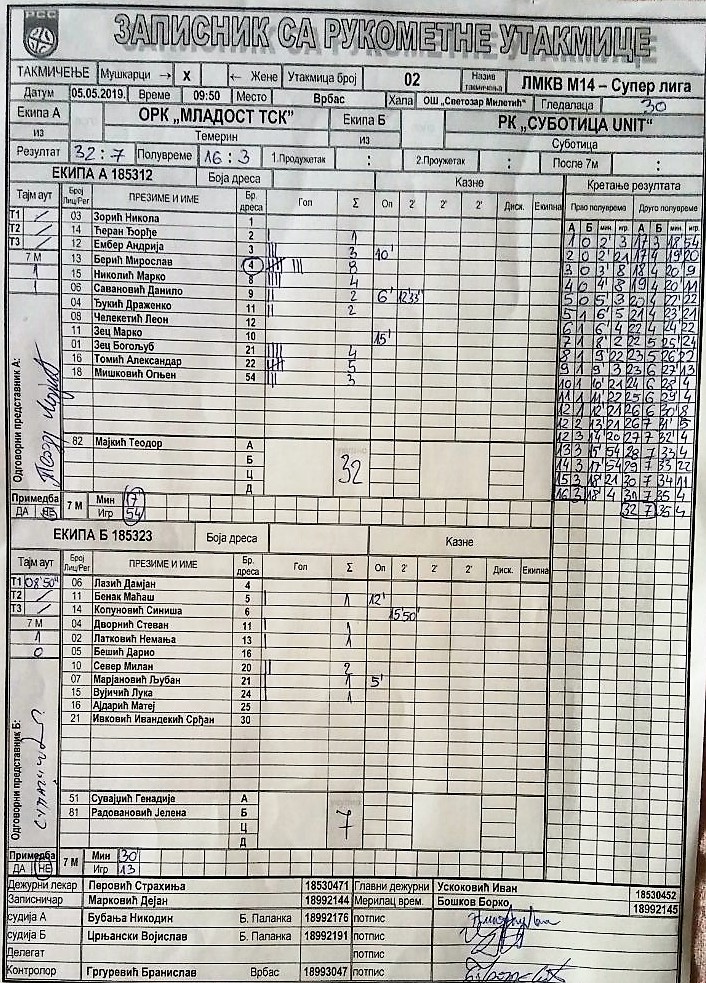 РСС
ЗАПИСНИК СА РУКОМЕТНЕ УТАКМИЦЕ
ТАКМИЧЕЊЕ Мушкарци → X ← Жене Утакмица број 02 Назив такмичења ЛМКВ М14 – Супер лига
Датум 05.05.2019. Време 09:50 Место Врбас Хала ОШ „Светозар Милетић“ Гледалаца 30
Екипа А ОРК „МЛАДОСТ ТСК“ Екипа Б РК „СУБОТИЦА UNIT“
из Темерин из Суботица
Резултат 32:7 Полувреме 16:3 1.Продужетак : 2.Проужетак : После 7м :
ЕКИПА А 185312 Боја дреса Казне Кретање резултата
Тајм аут Број Лиц/Рег ПРЕЗИМЕ И ИМЕ Бр. дреса Гол Σ Оп 2' 2' 2' Диск. Екипна Прво полувреме Друго полувреме
А Б мин. игр. А Б мин. игр.
Т1 / 03 Зорић Никола 1
Т2 / 14 Ћеран Ђорђе 2 1
Т3 / 12 Ембер Андрија 3 3 10'
7 М 13 Берић Мирослав 4 8
1 15 Николић Марко 8 4
1 06 Савановић Данило 9 2 6' 12'33"
04 Ђукић Драженко 11 2
08 Челекетић Леон 12
11 Зец Марко 10 15'
01 Зец Богољуб 21 4
16 Томић Александар 22 5
18 Мишковић Огњен 54 3
1 0 2' 3 17 3 18 54
2 0 2' 21 17 4 19 20
3 0 3' 8 18 4 20 9
4 0 4' 8 19 4 20 11
5 0 5' 3 20 4 22 22
5 1 6' 5 21 4 23 21
6 1 6 4 22 4 24 22
7 1 8' 2 22 5 25 24
8 1 9' 22 23 5 26 22
9 1 9' 3 23 6 27 13
10 1 10' 21 24 6 28 4
11 1 11' 22 25 6 29 4
12 1 12' 21 26 6 30 8
12 2 13' 21 26 7 31 5
12 3 14' 20 27 7 32 4
13 3 15' 54 28 7 33 4
14 3 17' 54 29 7 33 22
15 3 18' 21 30 7 34 11
16 3 18' 4 31 7 35 4
32 7 35 4
Одговорни представник А:
82 Мајкић Теодор А
Б
Ц
Д
32
Примедба ДА НЕ 7 М Мин 17'
Игр 54
ЕКИПА Б 185323 Боја дреса Казне
Тајм аут Број Лиц/Рег ПРЕЗИМЕ И ИМЕ Бр. дреса Гол Σ Оп 2' 2' 2' Диск. Екипна
Т1 08'50" 06 Лазић Дамјан 4
Т2 / 11 Бенак Маћаш 5 1 12'
Т3 / 14 Копуновић Синиша 6 15'50"
7 М 04 Дворнић Стеван 11 1
1 02 Латковић Немања 13 1
0 05 Бешић Дарио 16
10 Север Милан 20 2
07 Марјановић Љубан 21 1 5'
15 Вујичић Лука 24 1
16 Ајдарић Матеј 25
21 Ивковић Ивандекић Срђан 30
Одговорни представник Б:
51 Сувајџић Генадије А
81 Радовановић Јелена Б
Ц
Д
7
Примедба ДА НЕ 7 М Мин 30'
Игр 13
Дежурни лекар Перовић Страхиња 18530471 Главни дежурни Ускоковић Иван 18530452
Записничар Марковић Дејан 18992144 Мерилац врем. Бошков Борко, 18992145
судија А Бубања Никодин Б. Паланка 18992176 потпис
судија Б Црњански Војислав Б. Паланка 18992191 потпис
Делегат потпис
Контролор Гргуревић Бранислав Врбас 18993047 потпис